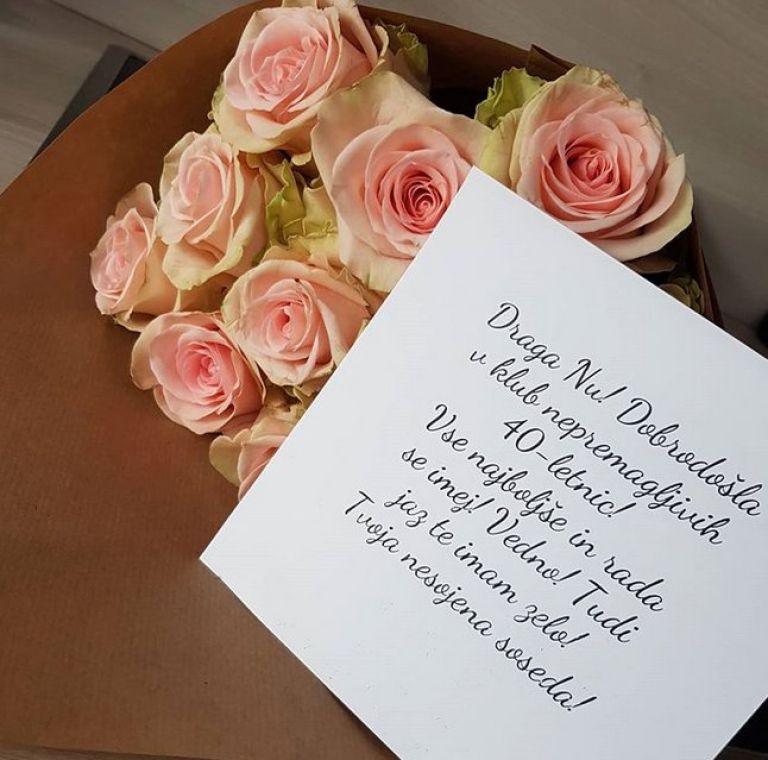 Draga Nu! Dobrodošla
v klub nepremagljivih
40-letnic!
Vse najboljše in rada
se imej! Vedno! Tudi
jaz te imam zelo!
Tvoja nesojena soseda!